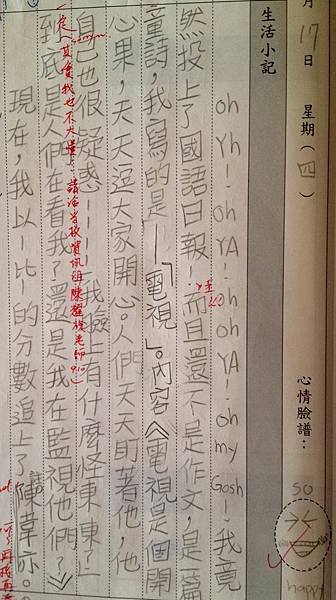 月17日 星期(四) 心情臉譜：
so
happy
生活小記
oh Yh！oh YA！oh oh YA！oh my Gosh！我竟
然投上了國語日報！而且還不是作文，是一篇
童詩，我寫的是「電視」。內容《電視是個開
心果，天天逗大家開心。人們天天盯著他，他
自己也很疑惑——「我臉上有什麼怪東東？」
到底是人們在看我？還是我在監視他們？》
現在，我以1比1的分數追上了陳韋亦。